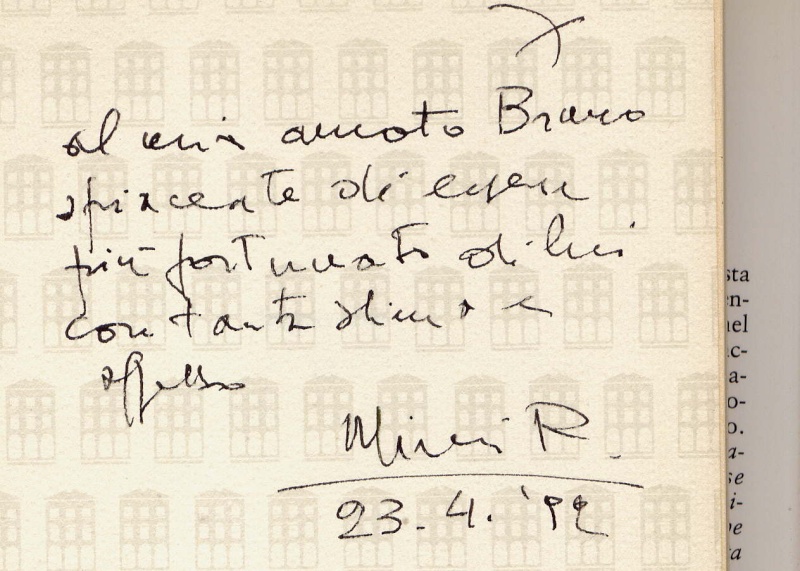 al mio amato Bruno
spiacente di essere
più fortunato di lui
con tanta stima e
affetto
R.
23.4.'92
sta
en-
nel
c-
a-
o-
o.
a-
se
i-
ve
ta